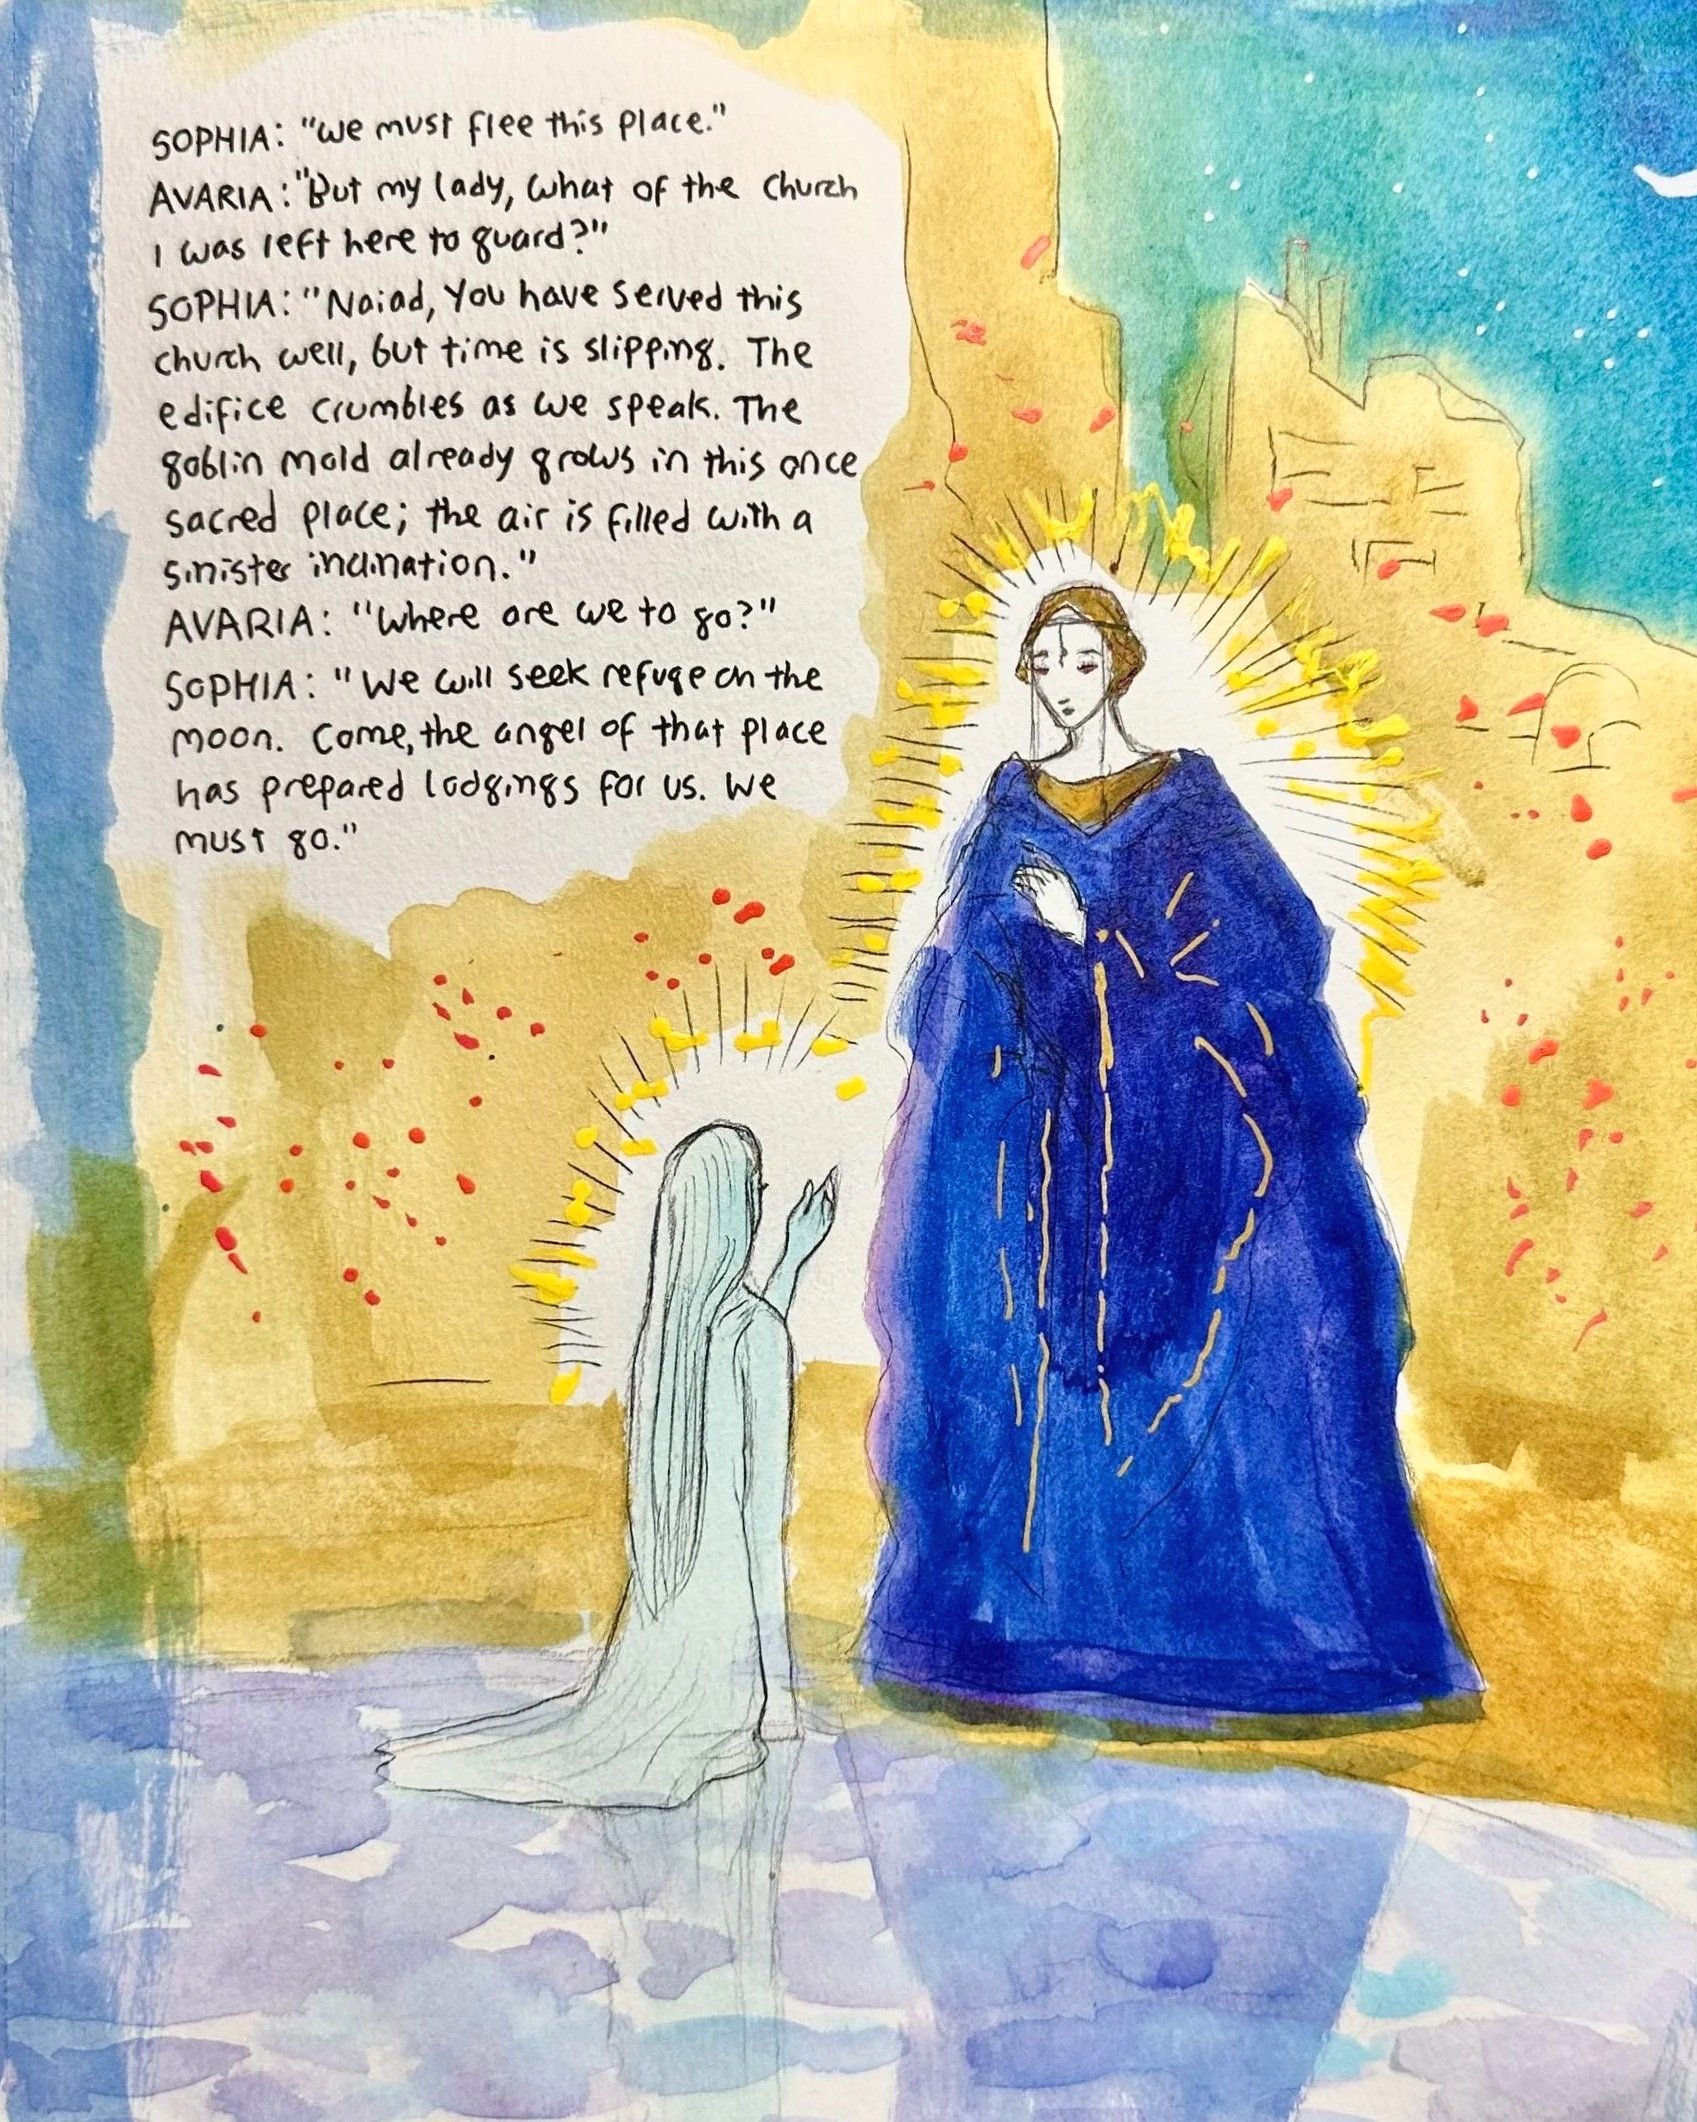 SOPHIA: "We must flee this place."
AVARIA: "But my lady, what of the church
I was left here to guard?"
SOPHIA: "Naiad, you have served this
church well, but time is slipping. The
edifice crumbles as we speak. The
goblin mold already grows in this once
sacred place; the air is filled with a
sinister inclination."
AVARIA: "Where are we to go?"
SOPHIA: "We will seek refuge on the
moon. Come, the angel of that place
has prepared lodgings for us. We
must go."